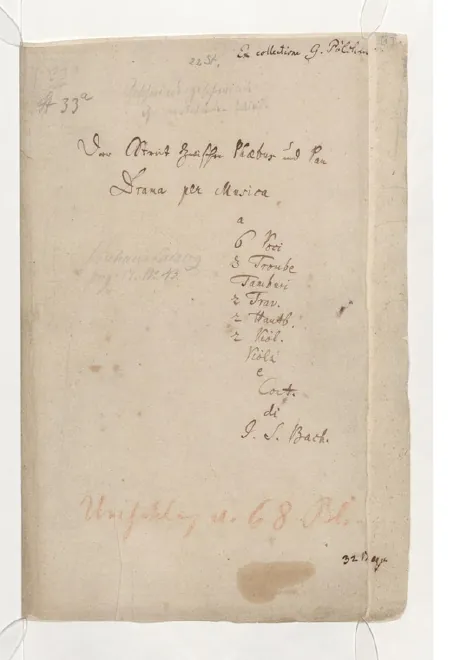 22 St. Ex collectione G. Pölchau
33a
Der Streit zwischen Phœbus und Pan
Drama per Musica
a
6 Voci
3 Trombe
Tamburi
2 Trav.
2 Hautb.
2 Viol.
Viola
e
Cont.
di
J. S. Bach.
68 Bl.
32